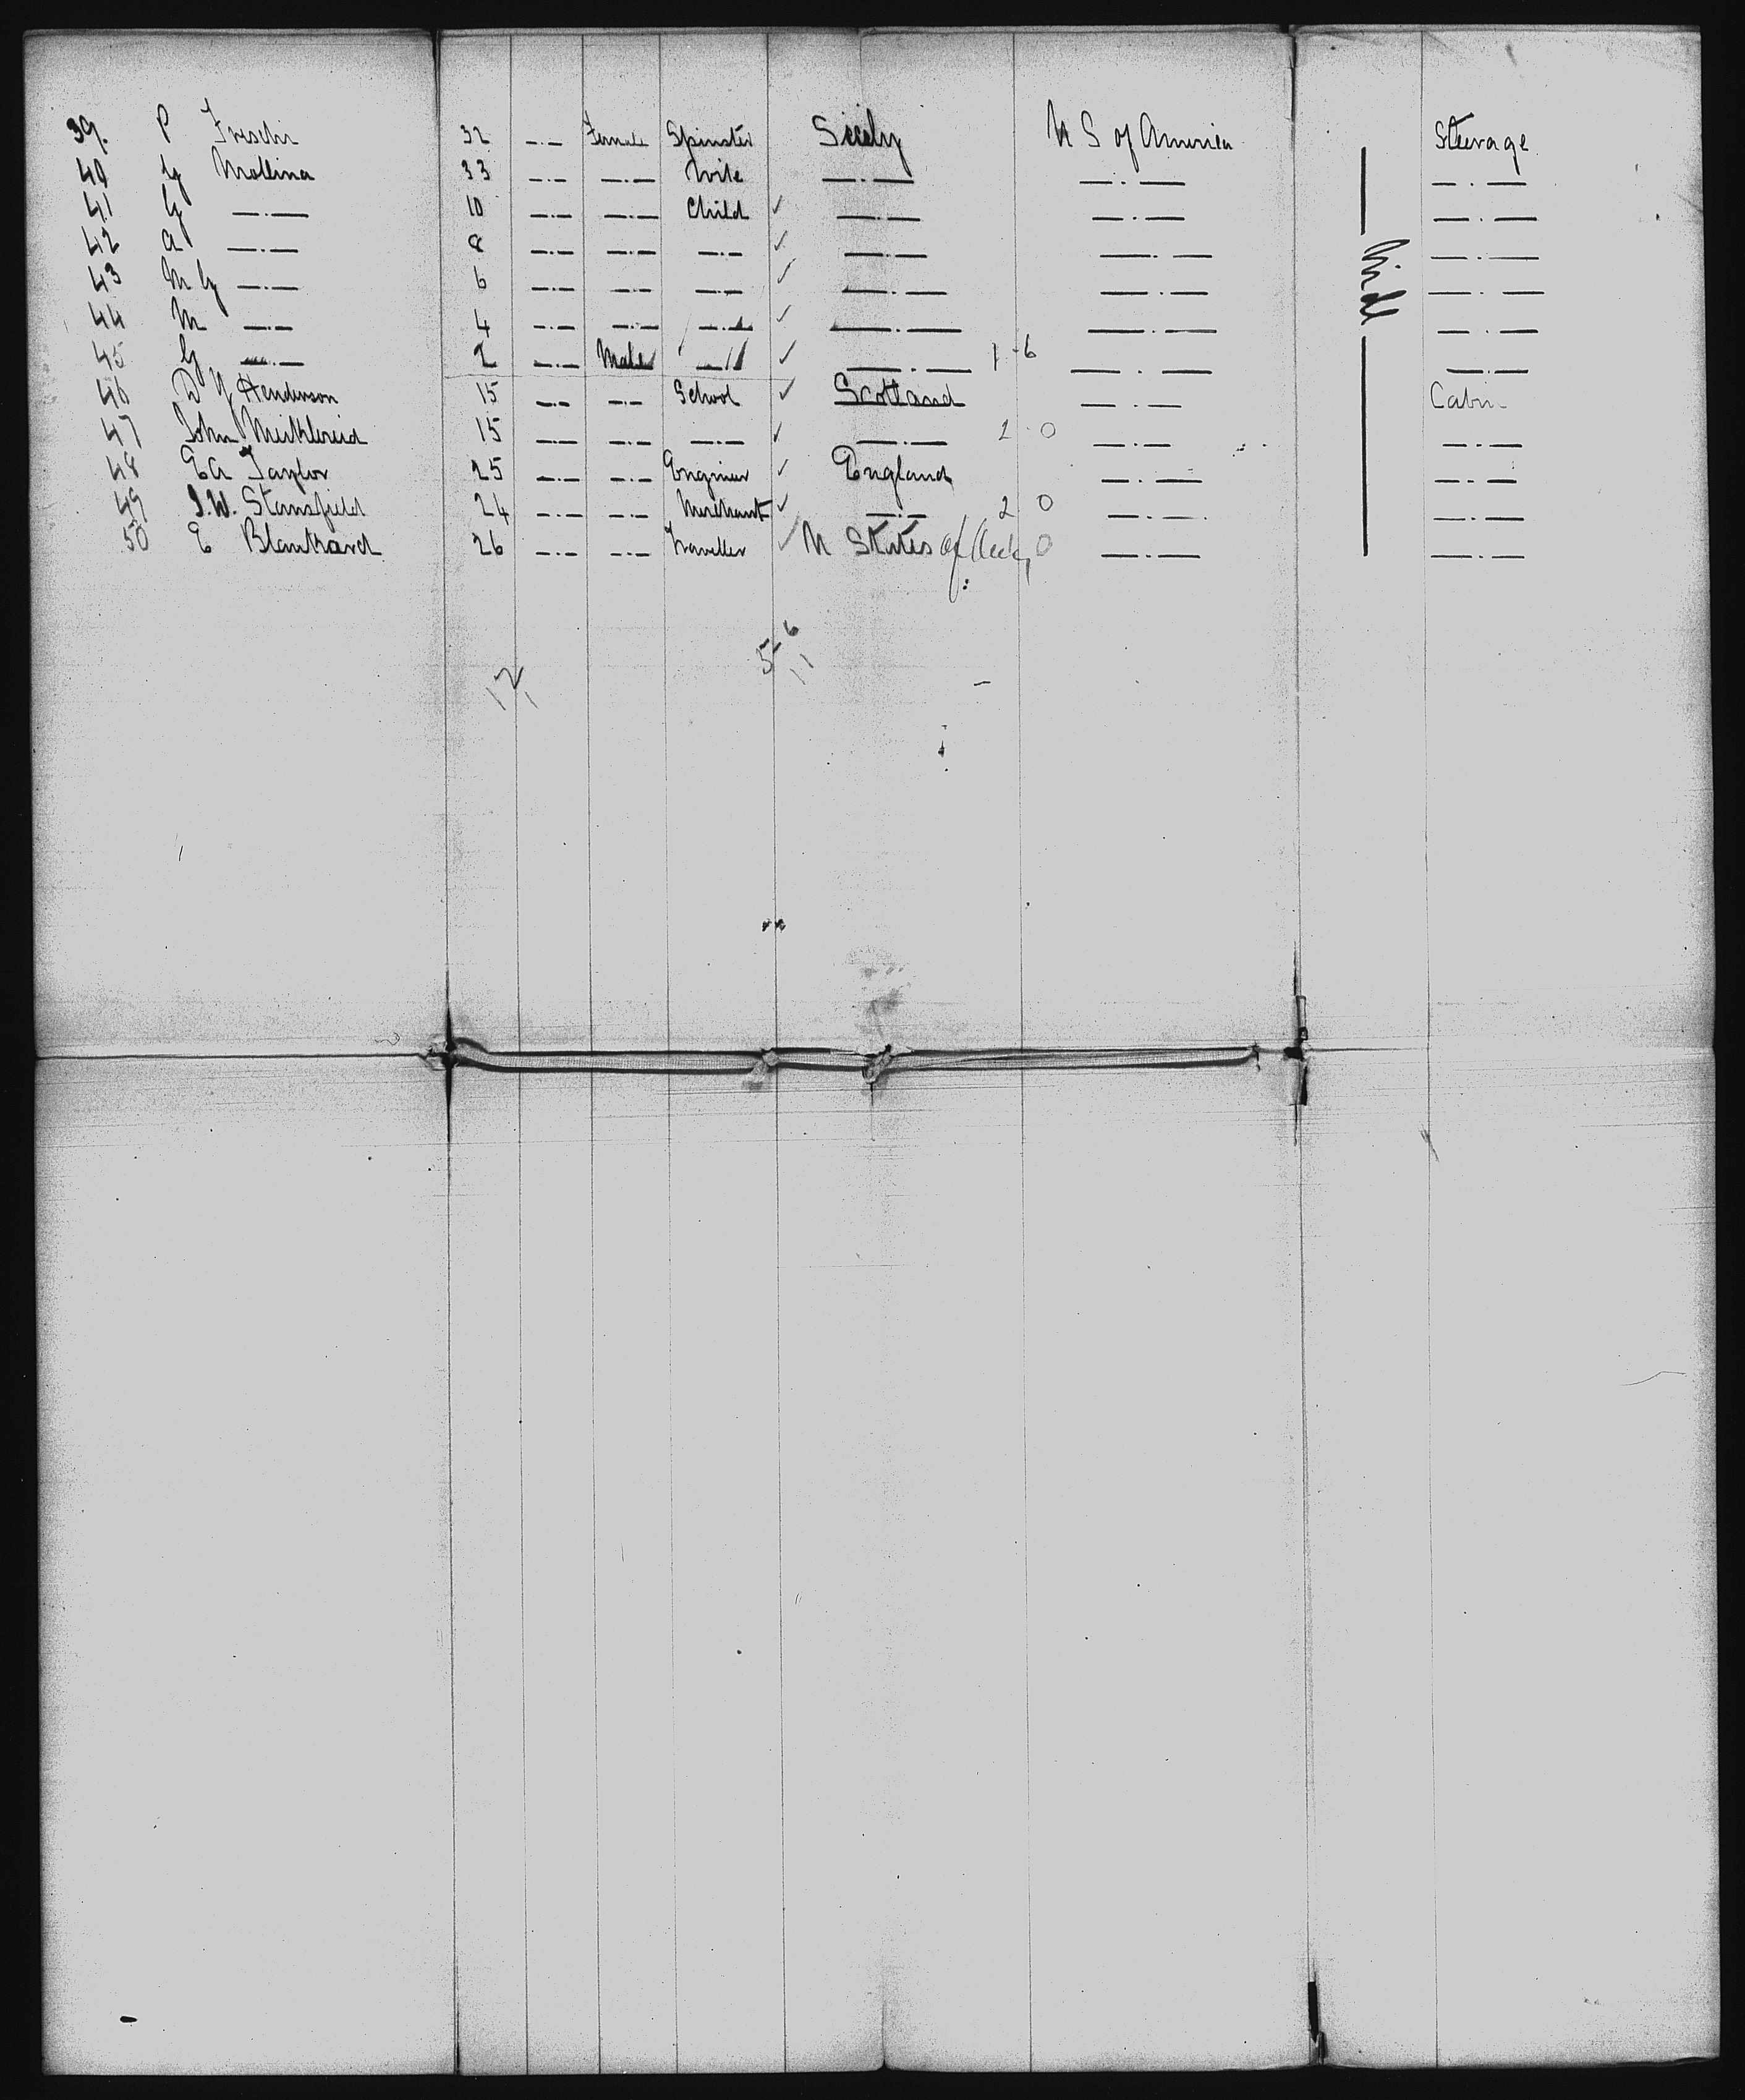 39. P Freschi 32 —·— Female Spinster Sicily U S of America Steerage
40 G Mollina 33 —·— —·— Wife —·— —·— —·—
41 G —·— 10 —·— —·— Child ✓ —·— —·— —·—
42 A —·— 8 —·— —·— —·— ✓ —·— —·— —·—
43 M G —·— 6 —·— —·— —·— ✓ —·— —·— —·—
44 M —·— 4 —·— —·— —·— ✓ —·— —·— —·—
45 G —·— 2 —·— Male —·— ✓ —·— 1-6 —·— —·—
46 D Y Henderson 15 —·— —·— School ✓ Scotland —·— Cabin
47 John Meiklereid 15 —·— —·— —·— ✓ —·— 2-0 —·— —·—
48 E A Taylor 25 —·— —·— Engineer ✓ England —·— —·—
49 J.W. Stansfield 24 —·— —·— Merchant ✓ —·— 2 0 —·— —·—
50 E Blankard 26 —·— —·— Traveller ✓ U States of 0 —·— —·—
Nil
5-6
12